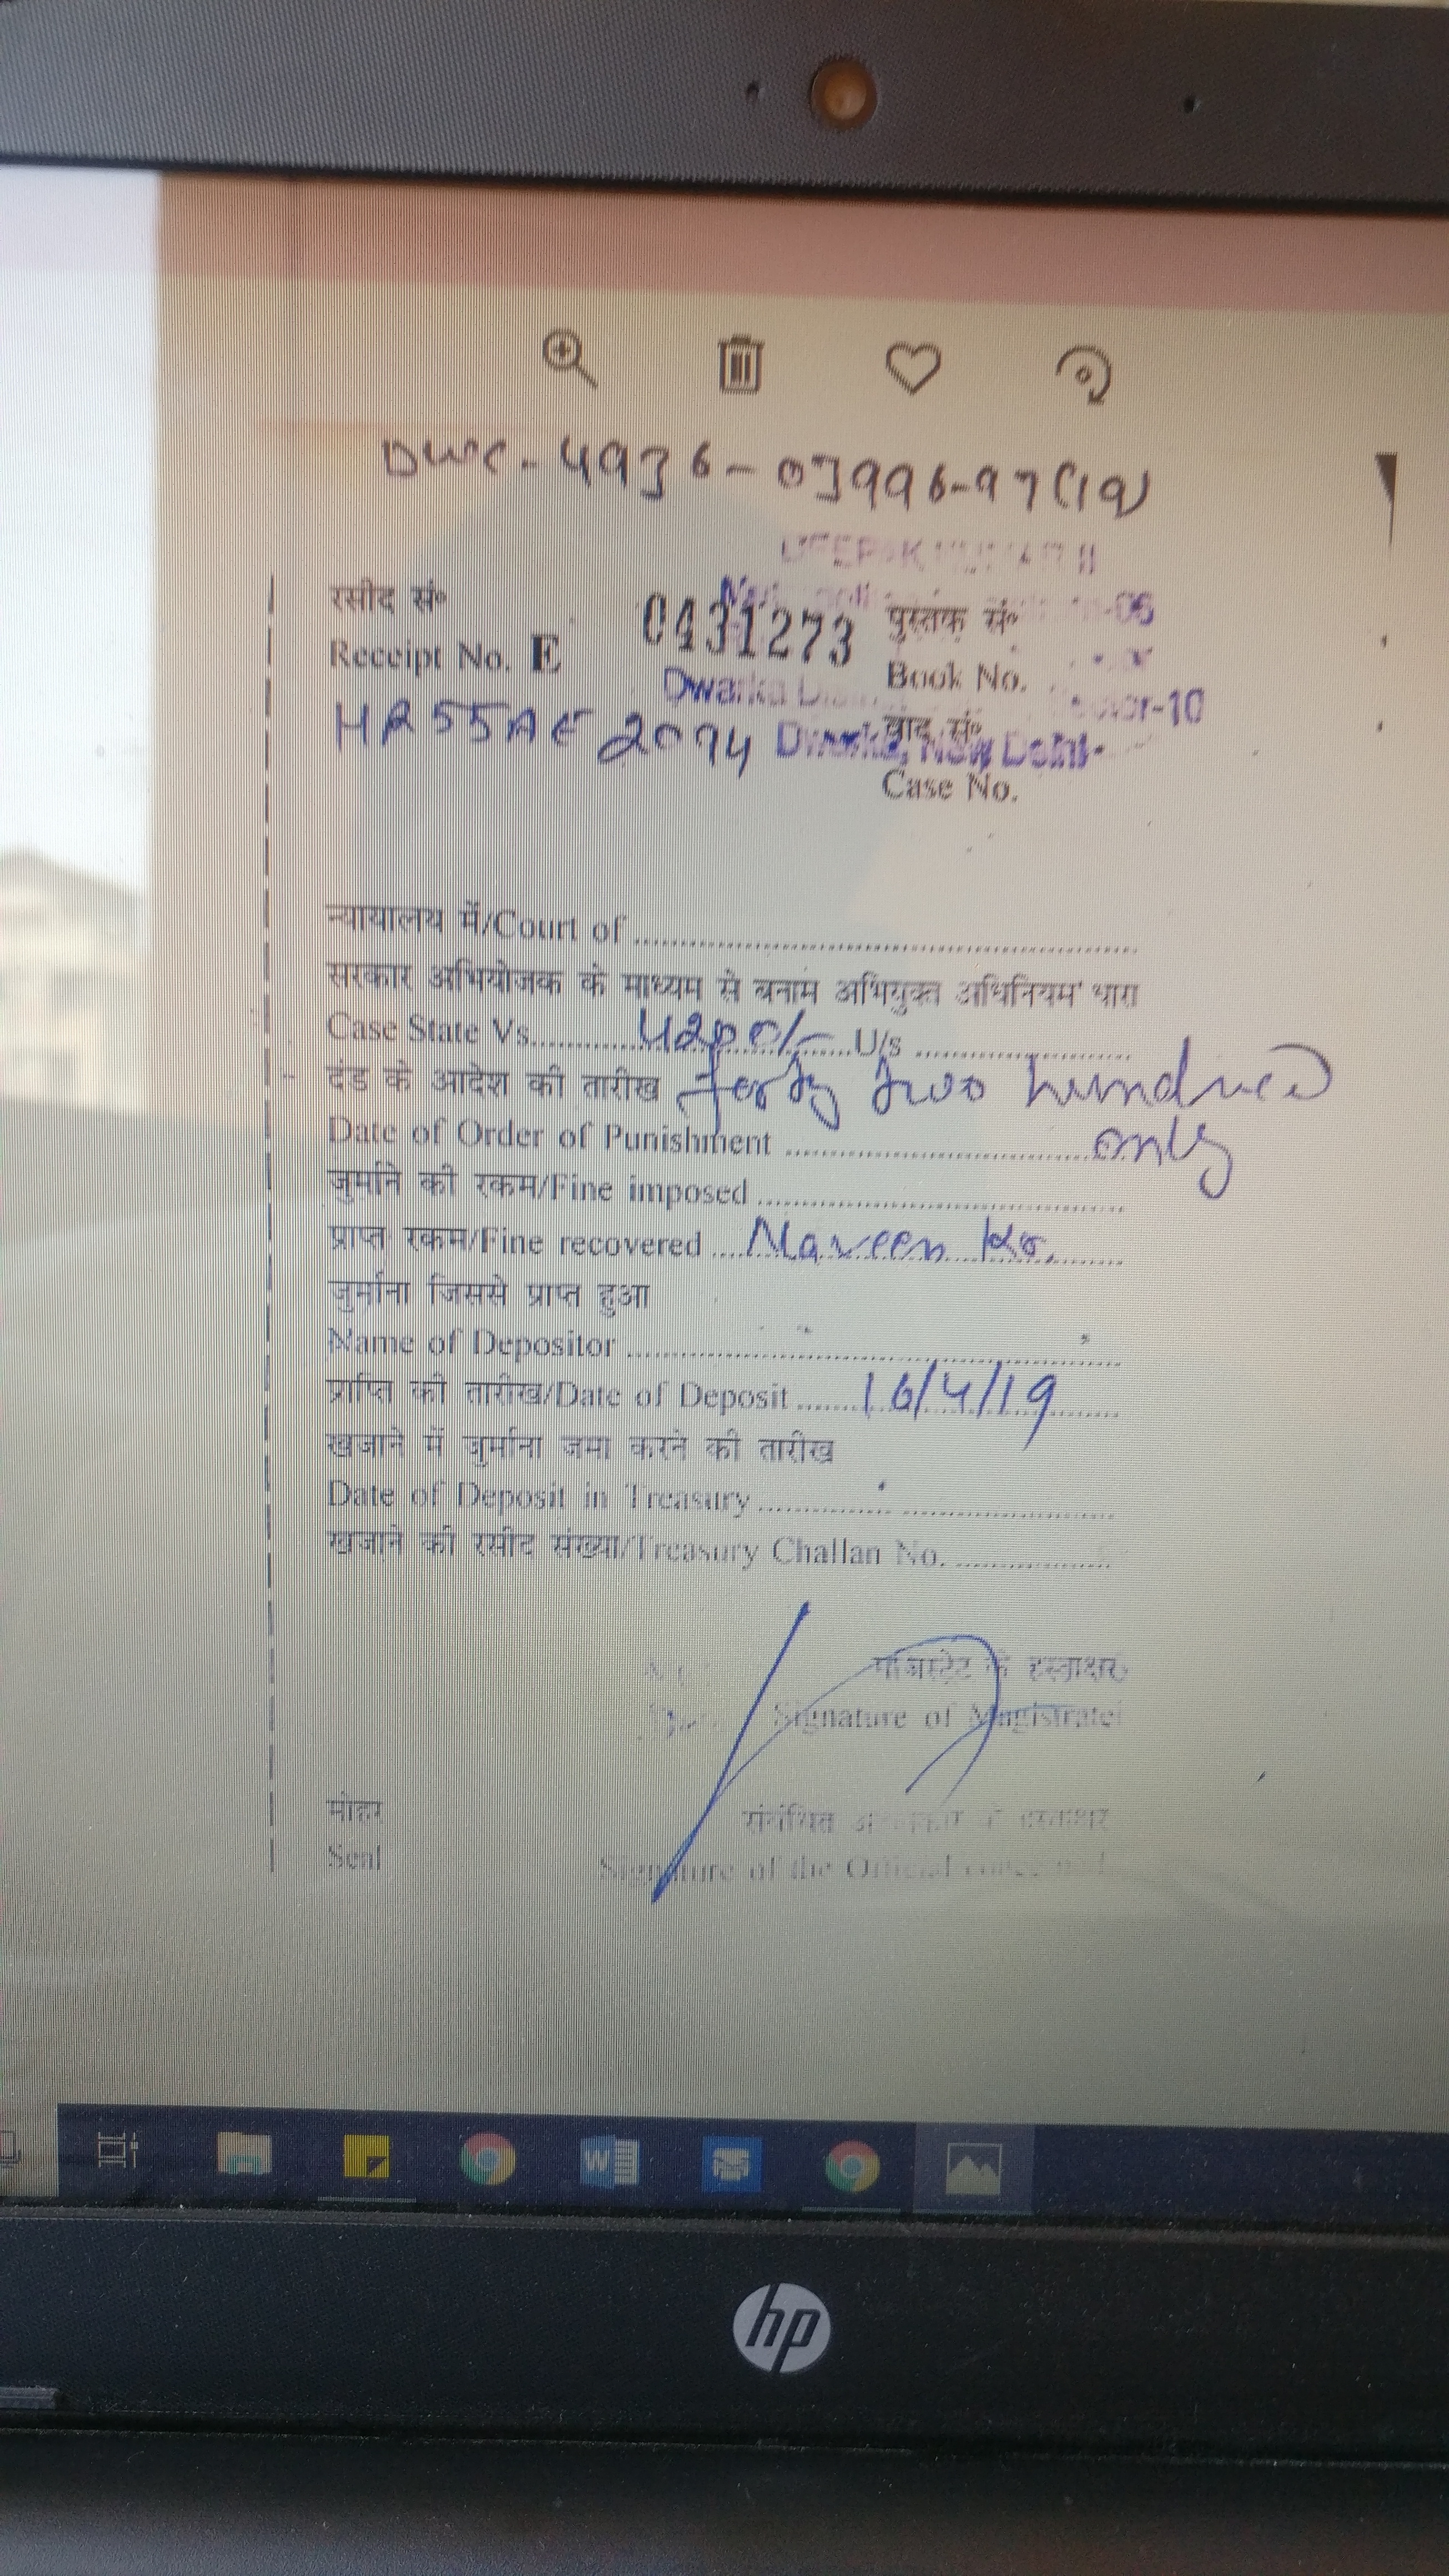 DWC-4936-03996-97(19)
DEEPAK KUMAR II
रसीद सं॰ 0431273 पुस्तक सं॰ -06
Receipt No. E Book No.
Dwarka -10
HR55AE 2094 वाद सं॰
Dwarka, New Delhi-
Case No.
न्यायालय में/Court of
सरकार अभियोजक के माध्यम से बनाम अभियुक्त अधिनियम धारा
Case State Vs. 4200/- U/s
दंड के आदेश की तारीख forty two hundred
Date of Order of Punishment only
जुर्माने की रकम/Fine imposed
प्राप्त रकम/Fine recovered Naveen Kr.
जुर्माना जिससे प्राप्त हुआ
Name of Depositor
प्राप्ति की तारीख/Date of Deposit 16/4/19
खजाने में जुर्माना जमा करने की तारीख
Date of Deposit in Treasury
खजाने की रसीद संख्या/Treasury Challan No.
मजिस्ट्रेट के हस्ताक्षर
Signature of Magistrate
मोहर संबंधित के हस्ताक्षर
Seal Signature of the Official
hp